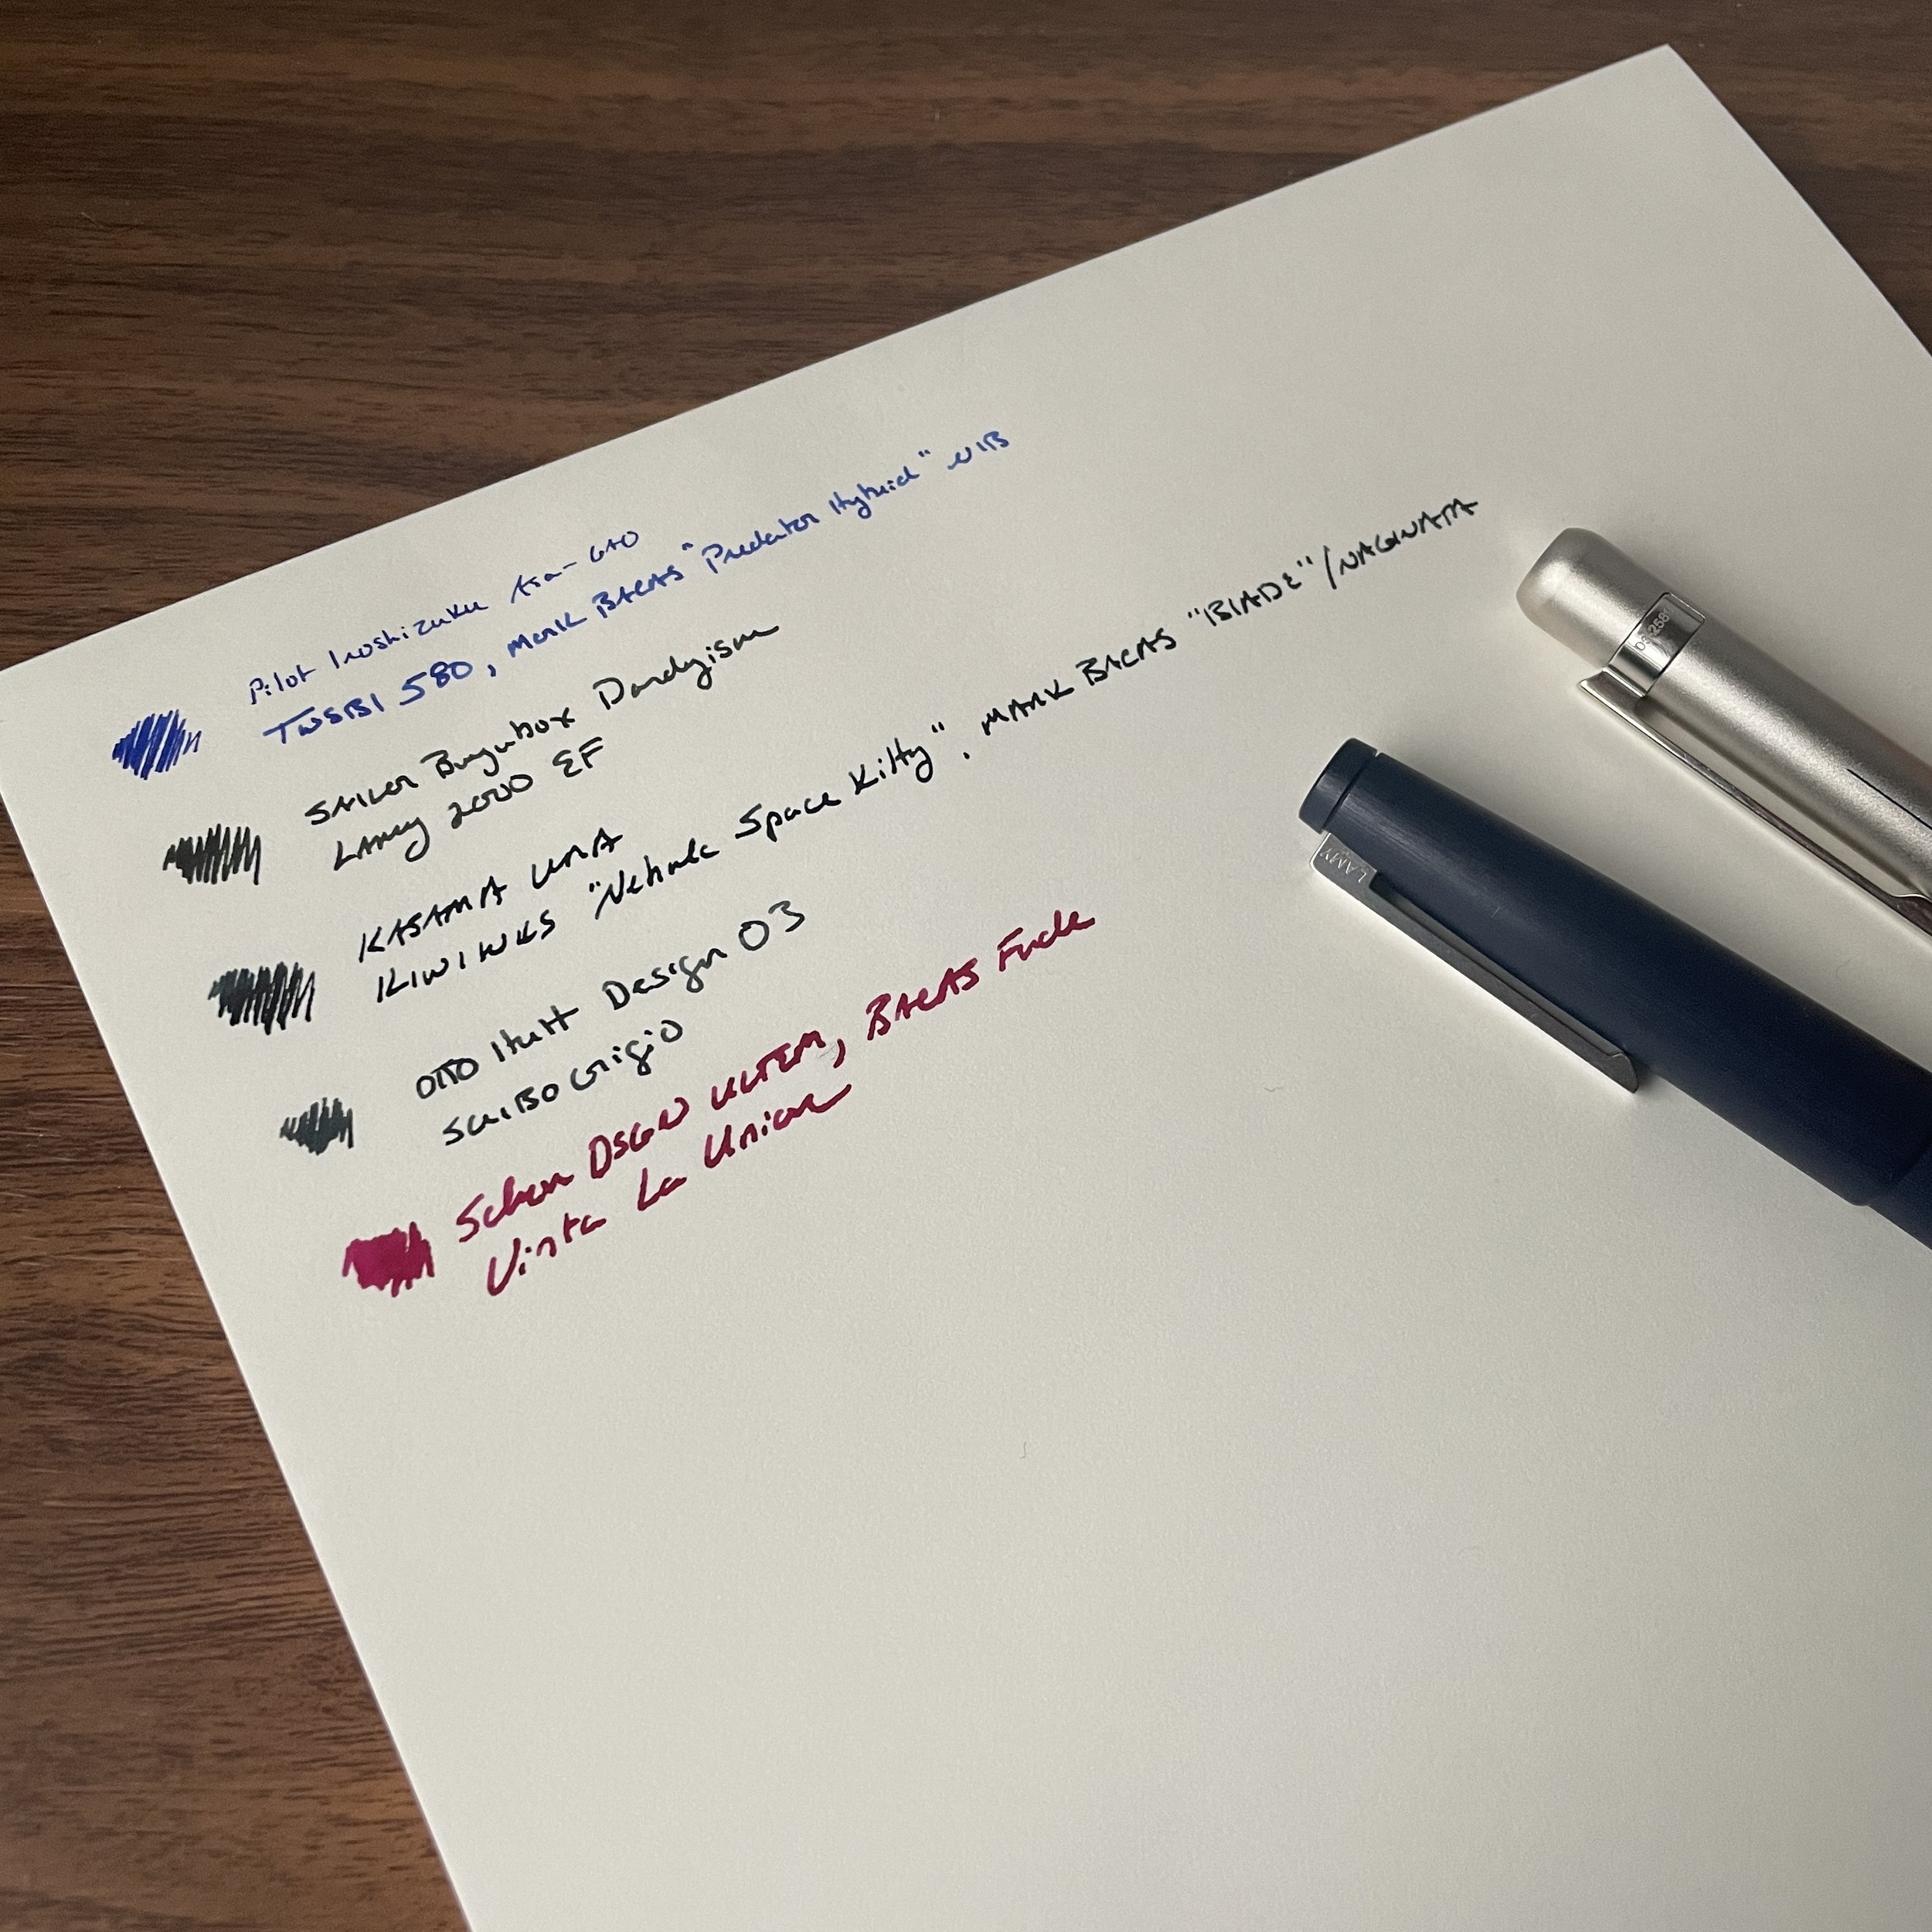 Pilot Iroshizuku Asa-GAO
TWSBI 580, MARK BACAS "Predator Hybrid" NIB
SAILOR Bungubox Dandyism
LAMY 2000 EF
KASAMA UNA
KIWI INKS "Nebula Space Kitty", MARK BACAS "BLADE"/NAGINATA
OTTO Hutt Design 03
SCRIBO Grigio
Schon DSGN ULTEM, BACAS Fude
Vinta La Union
LAMY